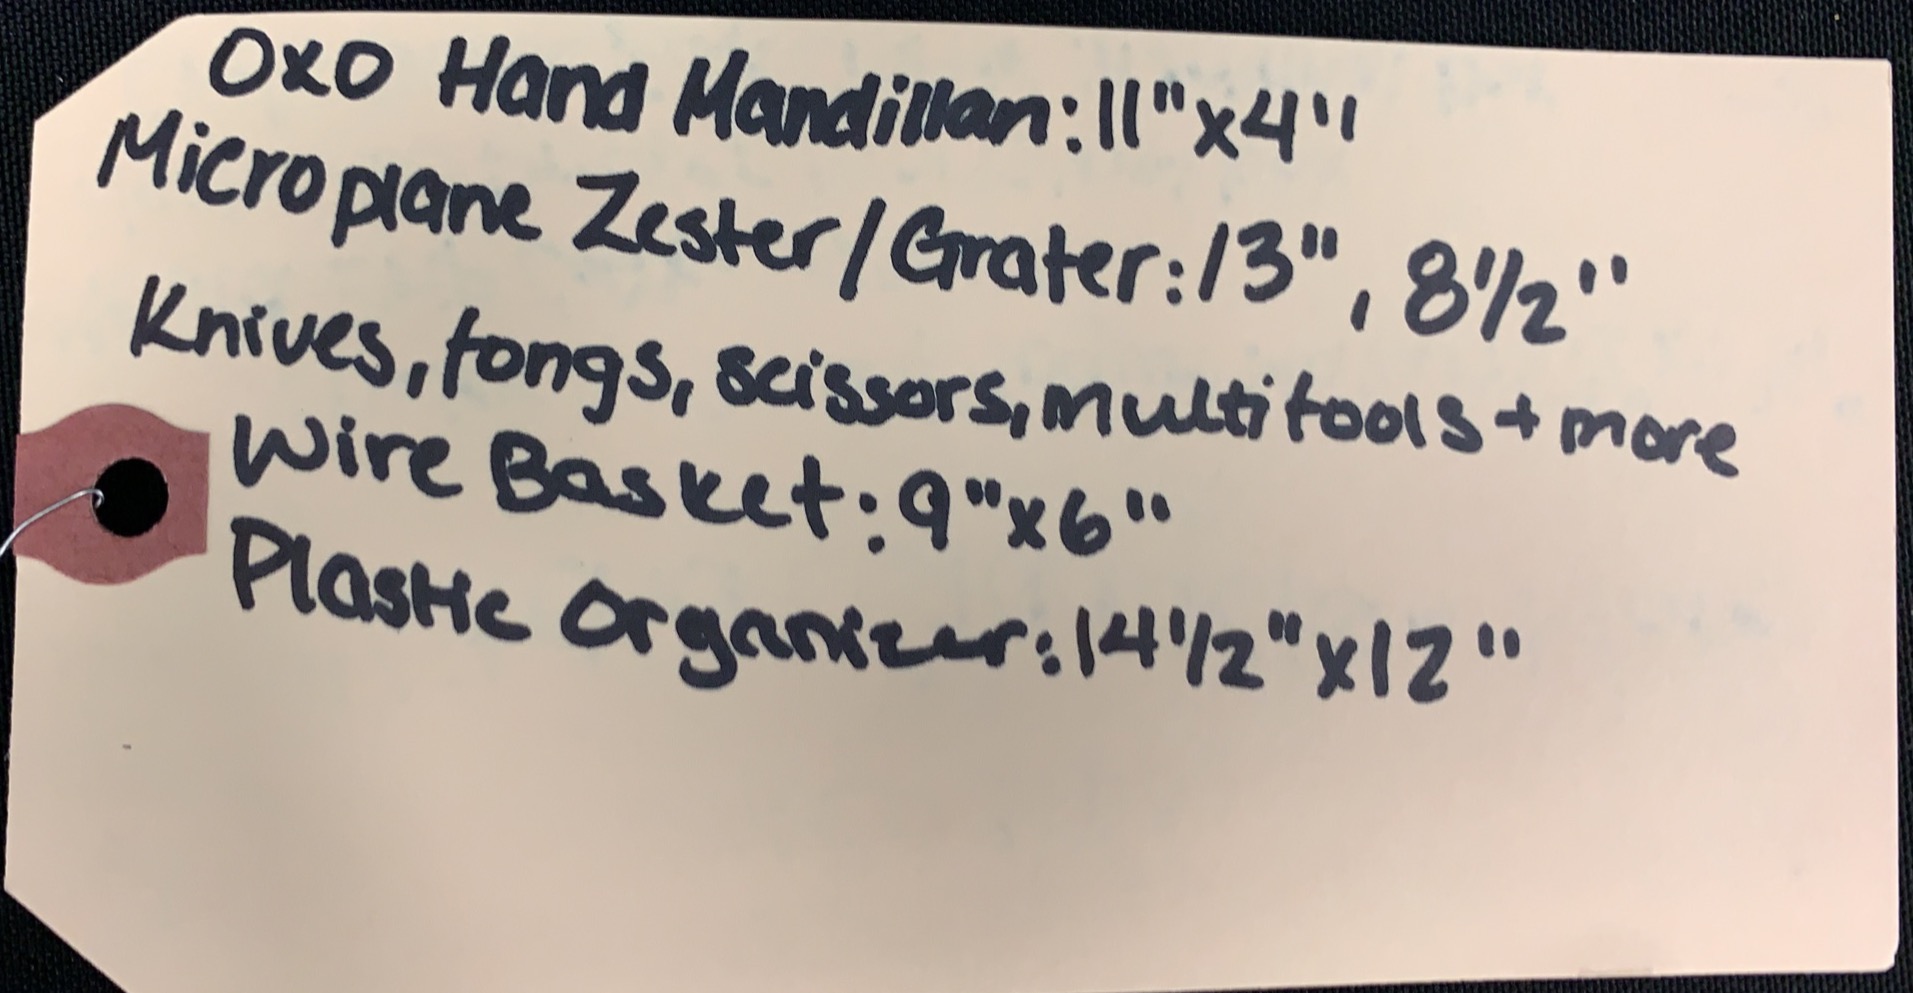 OXO Hand Mandillan: 11"x4"
Microplane Zester/Grater: 13", 8 1/2"
Knives, tongs, scissors, multitools + more
Wire Basket: 9"x6"
Plastic Organizer: 14 1/2"x12"